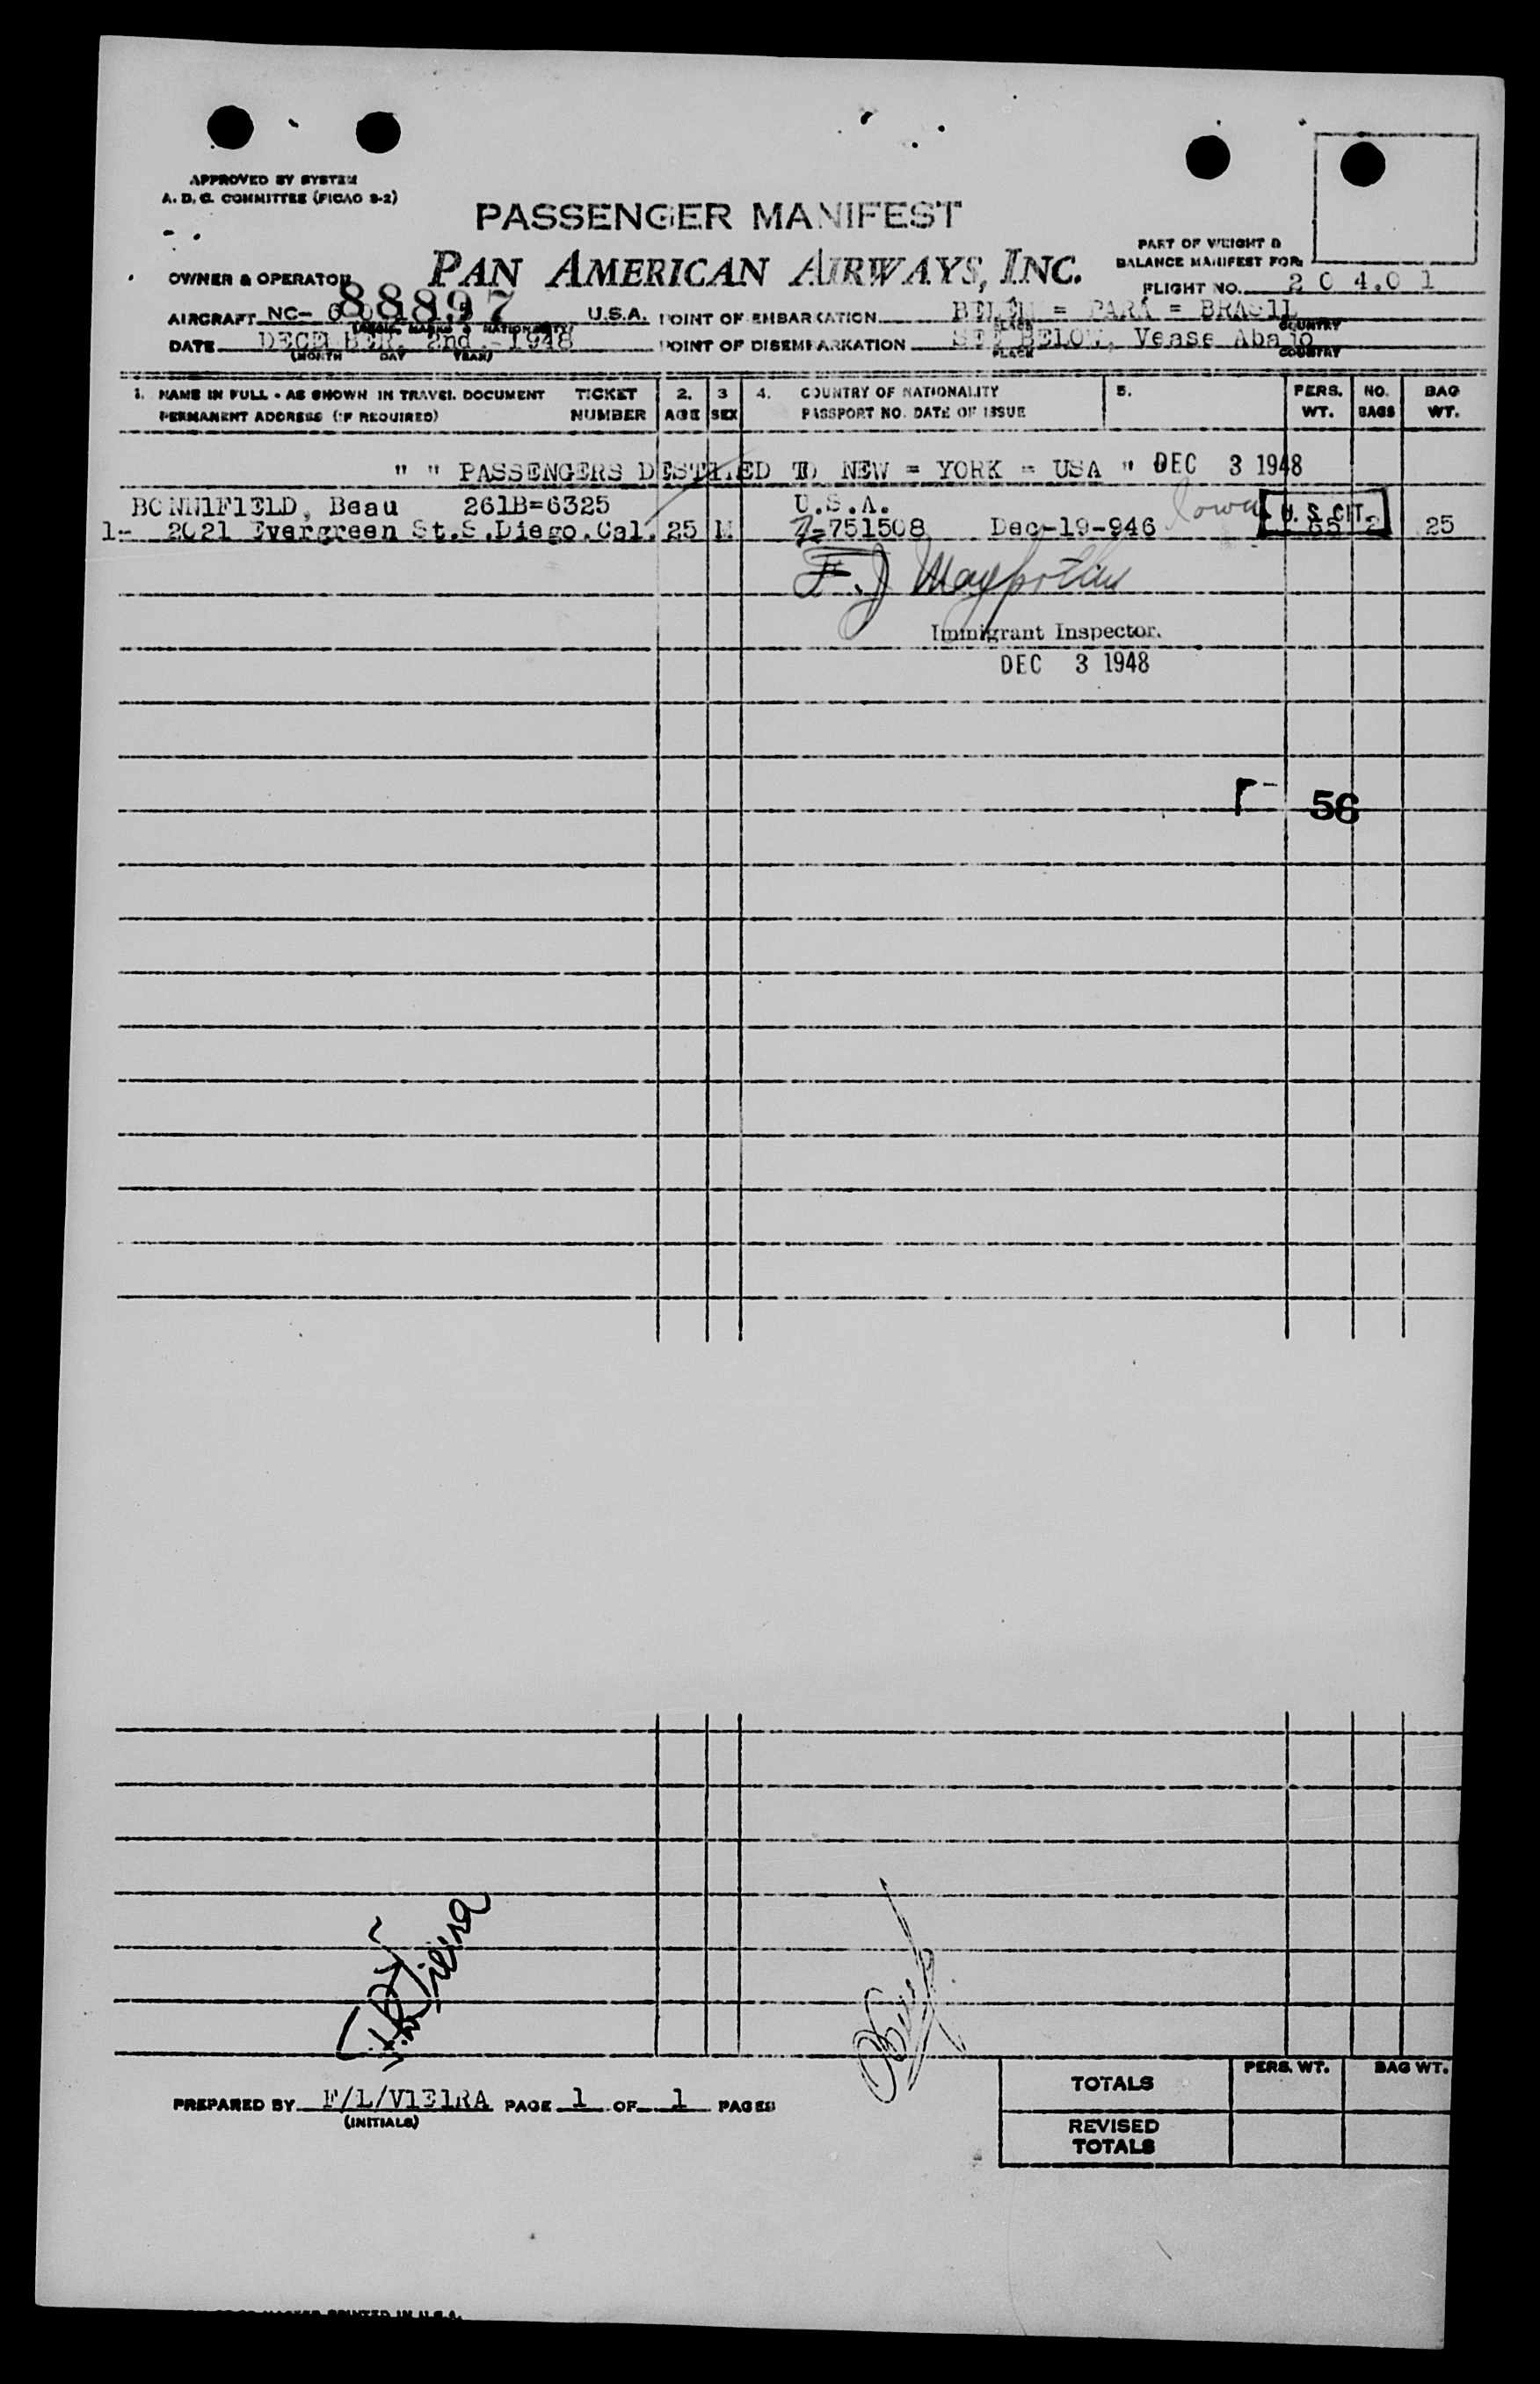 APPROVED BY SYSTEM
A. D. C. COMMITTEE (FICAO 9-2)
PASSENGER MANIFEST
OWNER & OPERATOR PAN AMERICAN AIRWAYS, INC.
PART OF WEIGHT &
BALANCE MANIFEST FOR:
FLIGHT NO. 2 0 4.0 1
AIRCRAFT NC- 88897 U.S.A. POINT OF EMBARKATION BELÉM = PARÁ = BRAS1L
PLACE COUNTRY
DATE DECEMBER. 2nd.-1948 POINT OF DISEMBARKATION SEE BELOW, Vease Abajo
(MONTH DAY YEAR) PLACE COUNTRY
1. NAME IN FULL - AS SHOWN IN TRAVEL DOCUMENT TICKET 2. 3 4. COUNTRY OF NATIONALITY 5. PERS. NO. BAG
PERMANENT ADDRESS (IF REQUIRED) NUMBER AGE SEX PASSPORT NO. DATE OF ISSUE WT. BAGS WT.
" " PASSENGERS DEST1NED TO NEW = YORK = USA " DEC 3 1948
BONN1F1ELD, Beau 261B=6325 U.S.A. Iowa U. S. CIT.
1- 2021 Evergreen St.S.Diego.Cal. 25 M Z=751508 Dec-19-946 2 25
F. J
Immigrant Inspector.
DEC 3 1948
56
Vieira
PREPARED BY F/L/V1E1RA PAGE 1 OF 1 PAGES
(INITIALS)
TOTALS PERS. WT. BAG WT.
REVISED
TOTALS
PRINTED IN U.S.A.